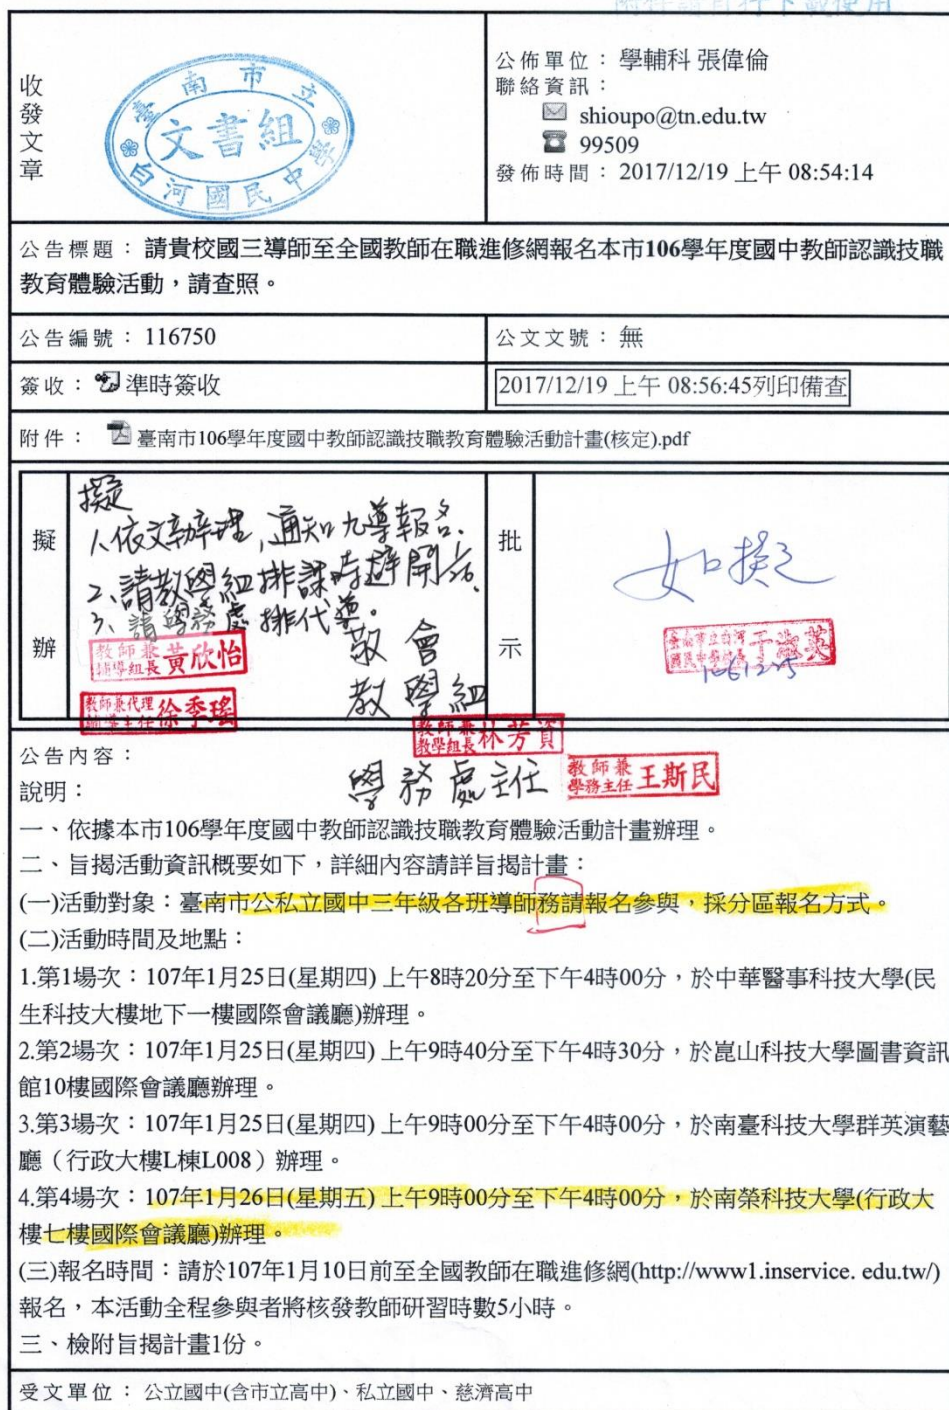 附件請自行下載使用
收發文章
臺南市立
文書組
白河國民中學
公佈單位：學輔科 張偉倫
聯絡資訊：
shioupo@tn.edu.tw
99509
發佈時間：2017/12/19 上午 08:54:14
公告標題：請貴校國三導師至全國教師在職進修網報名本市106學年度國中教師認識技職
教育體驗活動，請查照。
公告編號：116750
公文文號：無
簽收：準時簽收
2017/12/19 上午 08:56:45列印備查
附件：臺南市106學年度國中教師認識技職教育體驗活動計畫(核定).pdf
擬辦
擬
1、依文辦理，通知九導報名。
2、請教學組排課時避開1/26。
3、請學務處排代導。
敬會
教學組
教師兼輔導組長 黃欣怡
教師兼代理輔導主任 徐季瑤
教師兼教學組長 林芳資
學務處主任
教師兼學務主任 王斯民
批示
如擬
臺南市立白河國民中學校長 于淑英
1061225
公告內容：
說明：
一、依據本市106學年度國中教師認識技職教育體驗活動計畫辦理。
二、旨揭活動資訊概要如下，詳細內容請詳旨揭計畫：
(一)活動對象：臺南市公私立國中三年級各班導師務請報名參與，採分區報名方式。
(二)活動時間及地點：
1.第1場次：107年1月25日(星期四) 上午8時20分至下午4時00分，於中華醫事科技大學(民
生科技大樓地下一樓國際會議廳)辦理。
2.第2場次：107年1月25日(星期四) 上午9時40分至下午4時30分，於崑山科技大學圖書資訊
館10樓國際會議廳辦理。
3.第3場次：107年1月25日(星期四) 上午9時00分至下午4時00分，於南臺科技大學群英演藝
廳（行政大樓L棟L008）辦理。
4.第4場次：107年1月26日(星期五) 上午9時00分至下午4時00分，於南榮科技大學(行政大
樓七樓國際會議廳)辦理。
(三)報名時間：請於107年1月10日前至全國教師在職進修網(http://www1.inservice. edu.tw/)
報名，本活動全程參與者將核發教師研習時數5小時。
三、檢附旨揭計畫1份。
受文單位：公立國中(含市立高中)、私立國中、慈濟高中